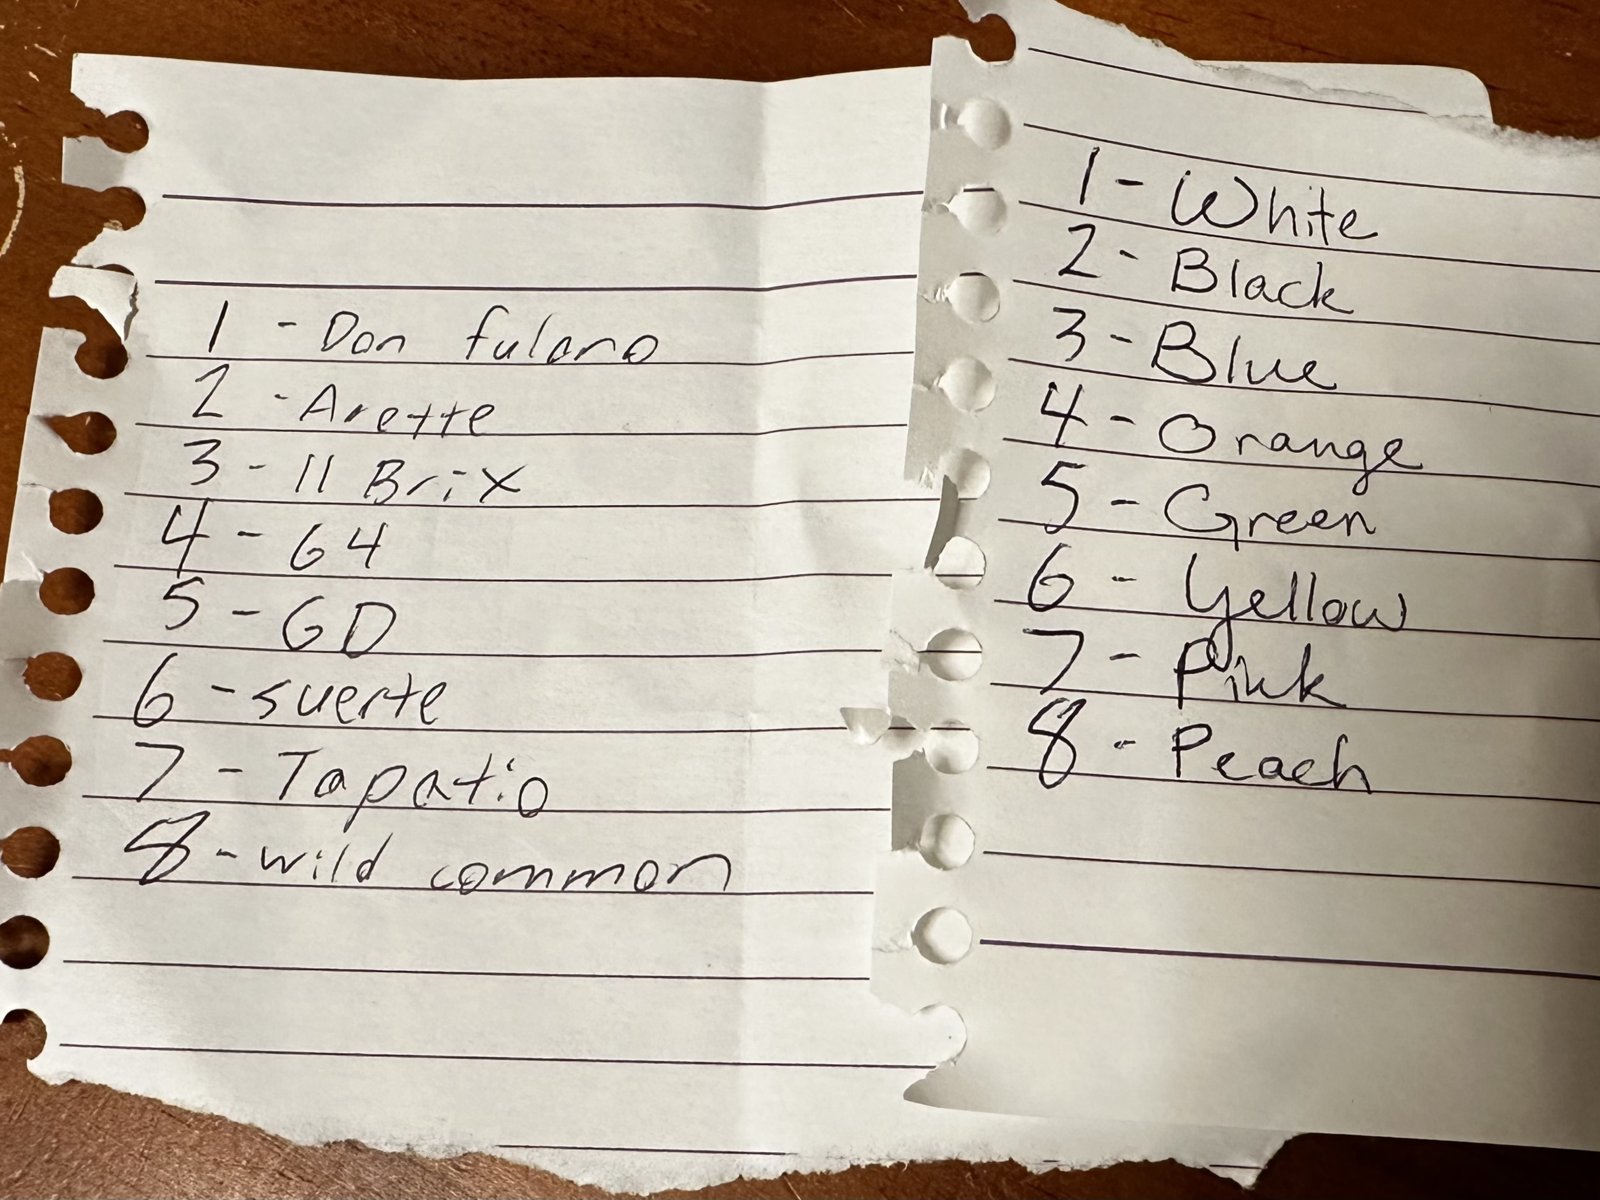 1 - Don fulano
2 - Arette
3 - 11 Brix
4 - G4
5 - GD
6 - suerte
7 - Tapatio
8 - wild common
1 - White
2 - Black
3 - Blue
4 - Orange
5 - Green
6 - Yellow
7 - Pink
8 - Peach